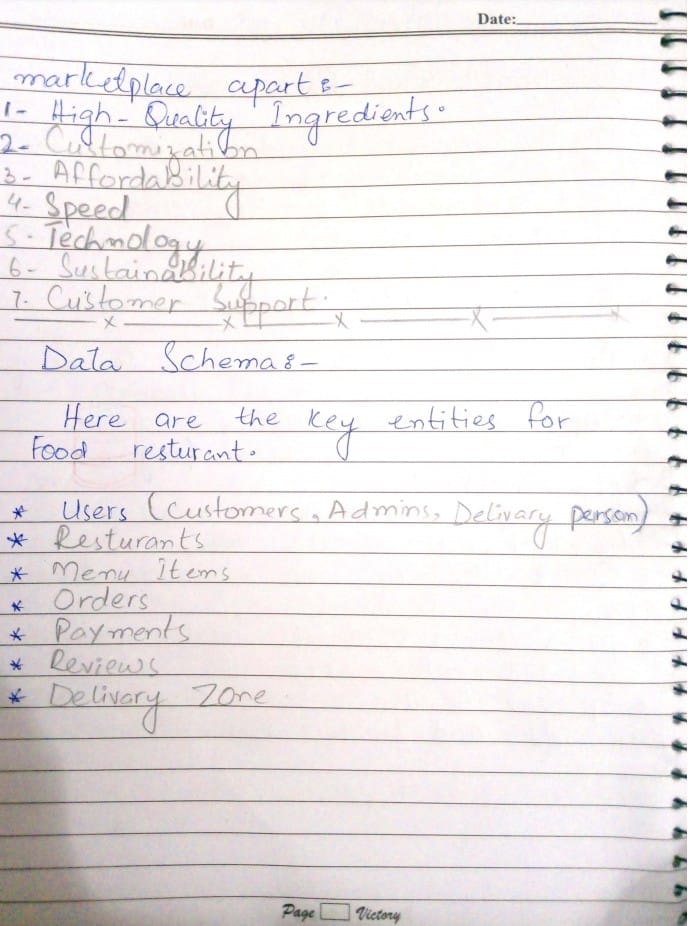 Date:
marketplace apart :-
1- High-Quality Ingredients.
2- Customization
3- Affordability
4- Speed
5- Technology
6- Sustainability
7. Customer Support.
Data Schema :-
Here are the key entities for
Food resturant.
* Users (Customers, Admins, Delivary person)
* Resturants
* Menu Items
* Orders
* Payments
* Reviews
* Delivary Zone
Page Victory